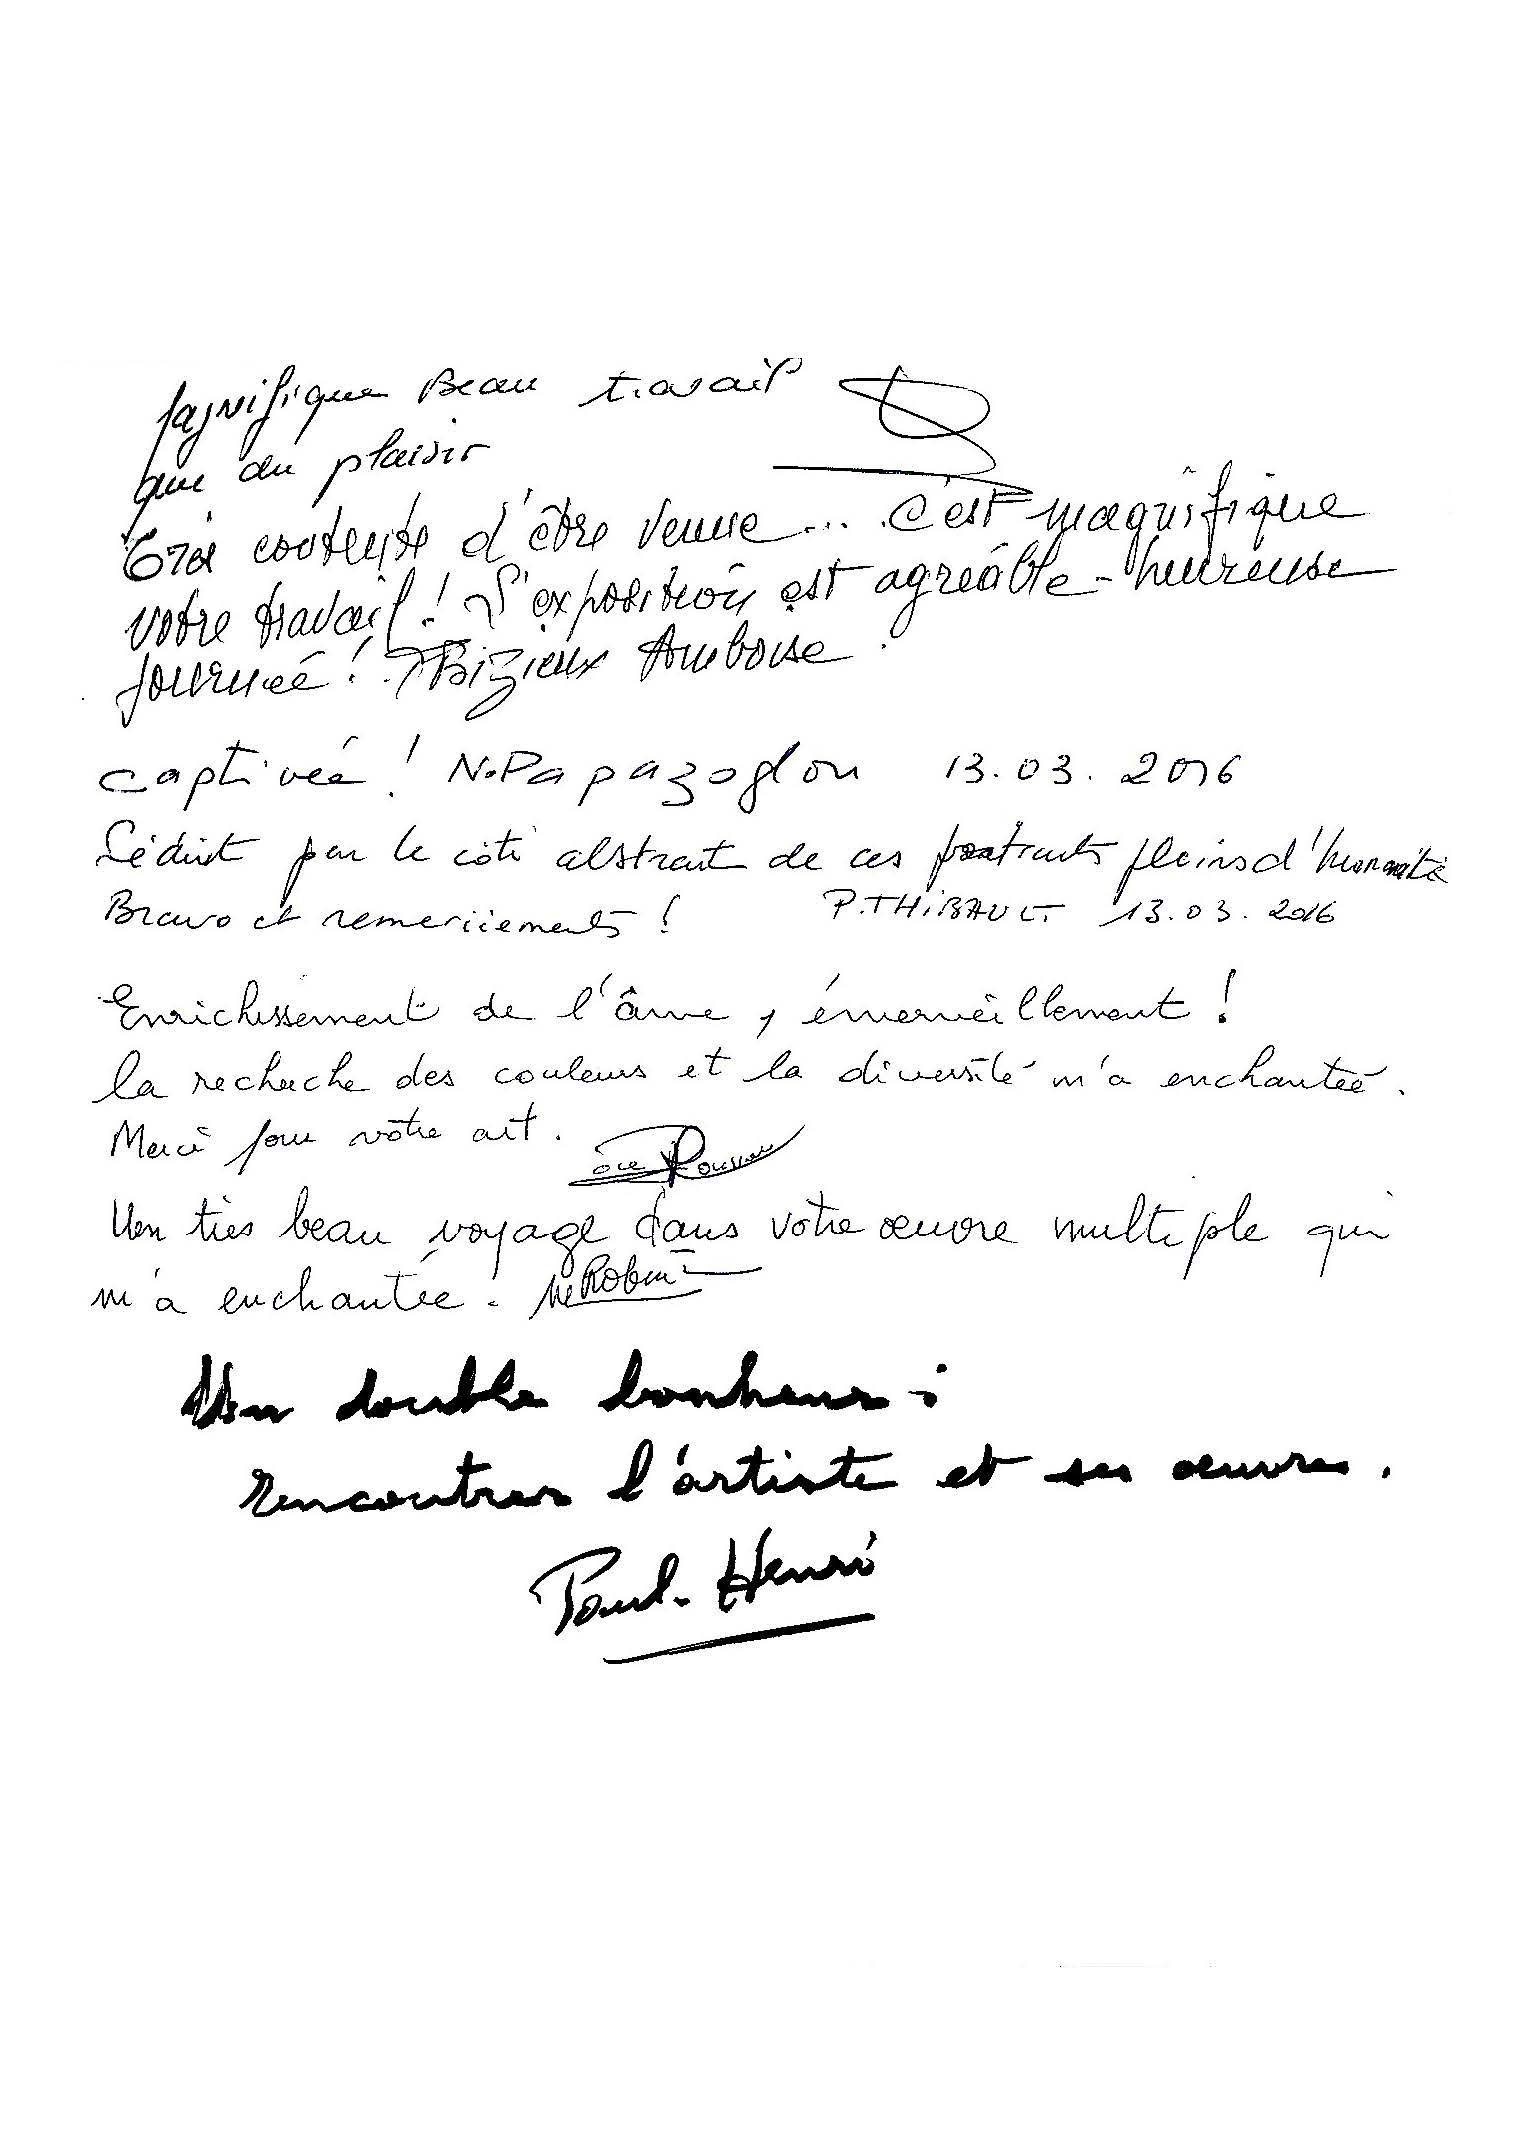 Magnifique Beau travail
que du plaisir
Très contente d'être venue... c'est magnifique
votre travail ! L'exposition est agréable - heureuse
journée ! Bizieux Amboise.
captivée ! N. Papazoglou 13.03.2016
Séduit par le côté abstrait de ces portraits pleins d'humanité
Bravo et remerciements ! P. THIBAULT 13.03.2016
Enrichissement de l'âme, émerveillement !
la recherche des couleurs et la diversité m'a enchantée.
Merci pour vôtre art.
Un très beau voyage dans votre œuvre multiple qui
m'a enchantée. Me Robin
Un double bonheur :
rencontrer l'artiste et ses œuvres.
Paul-Henri